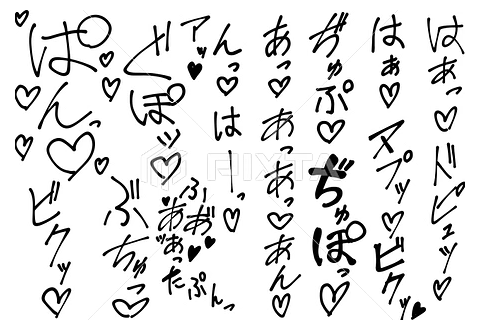 はあっ♡ドピュッ♡
はぁ♡アプッ♡ビクッ♥
ぢゅぷ♡ぢゅぽっ♡
あっ♡あっあっ♡あん♡
んっはーっ♡
アッ♥
ぐぽッ♡
ぱんっ♡
ビクッ♡
ぶちゅっ♡
ぷぉ♥
ああった
ぷんっ
PIXTA